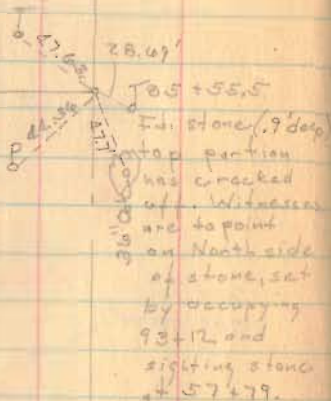 T
47.63
28.69'
T 85 + 55.5
P
44.56
47.7'
36" Oak
Fd. stone (.9' deep)
top portion
has cracked
off. Witnesses
are to point
on North side
of stone, set
by occupying
93+12 and
sighting stone
at 57+79.